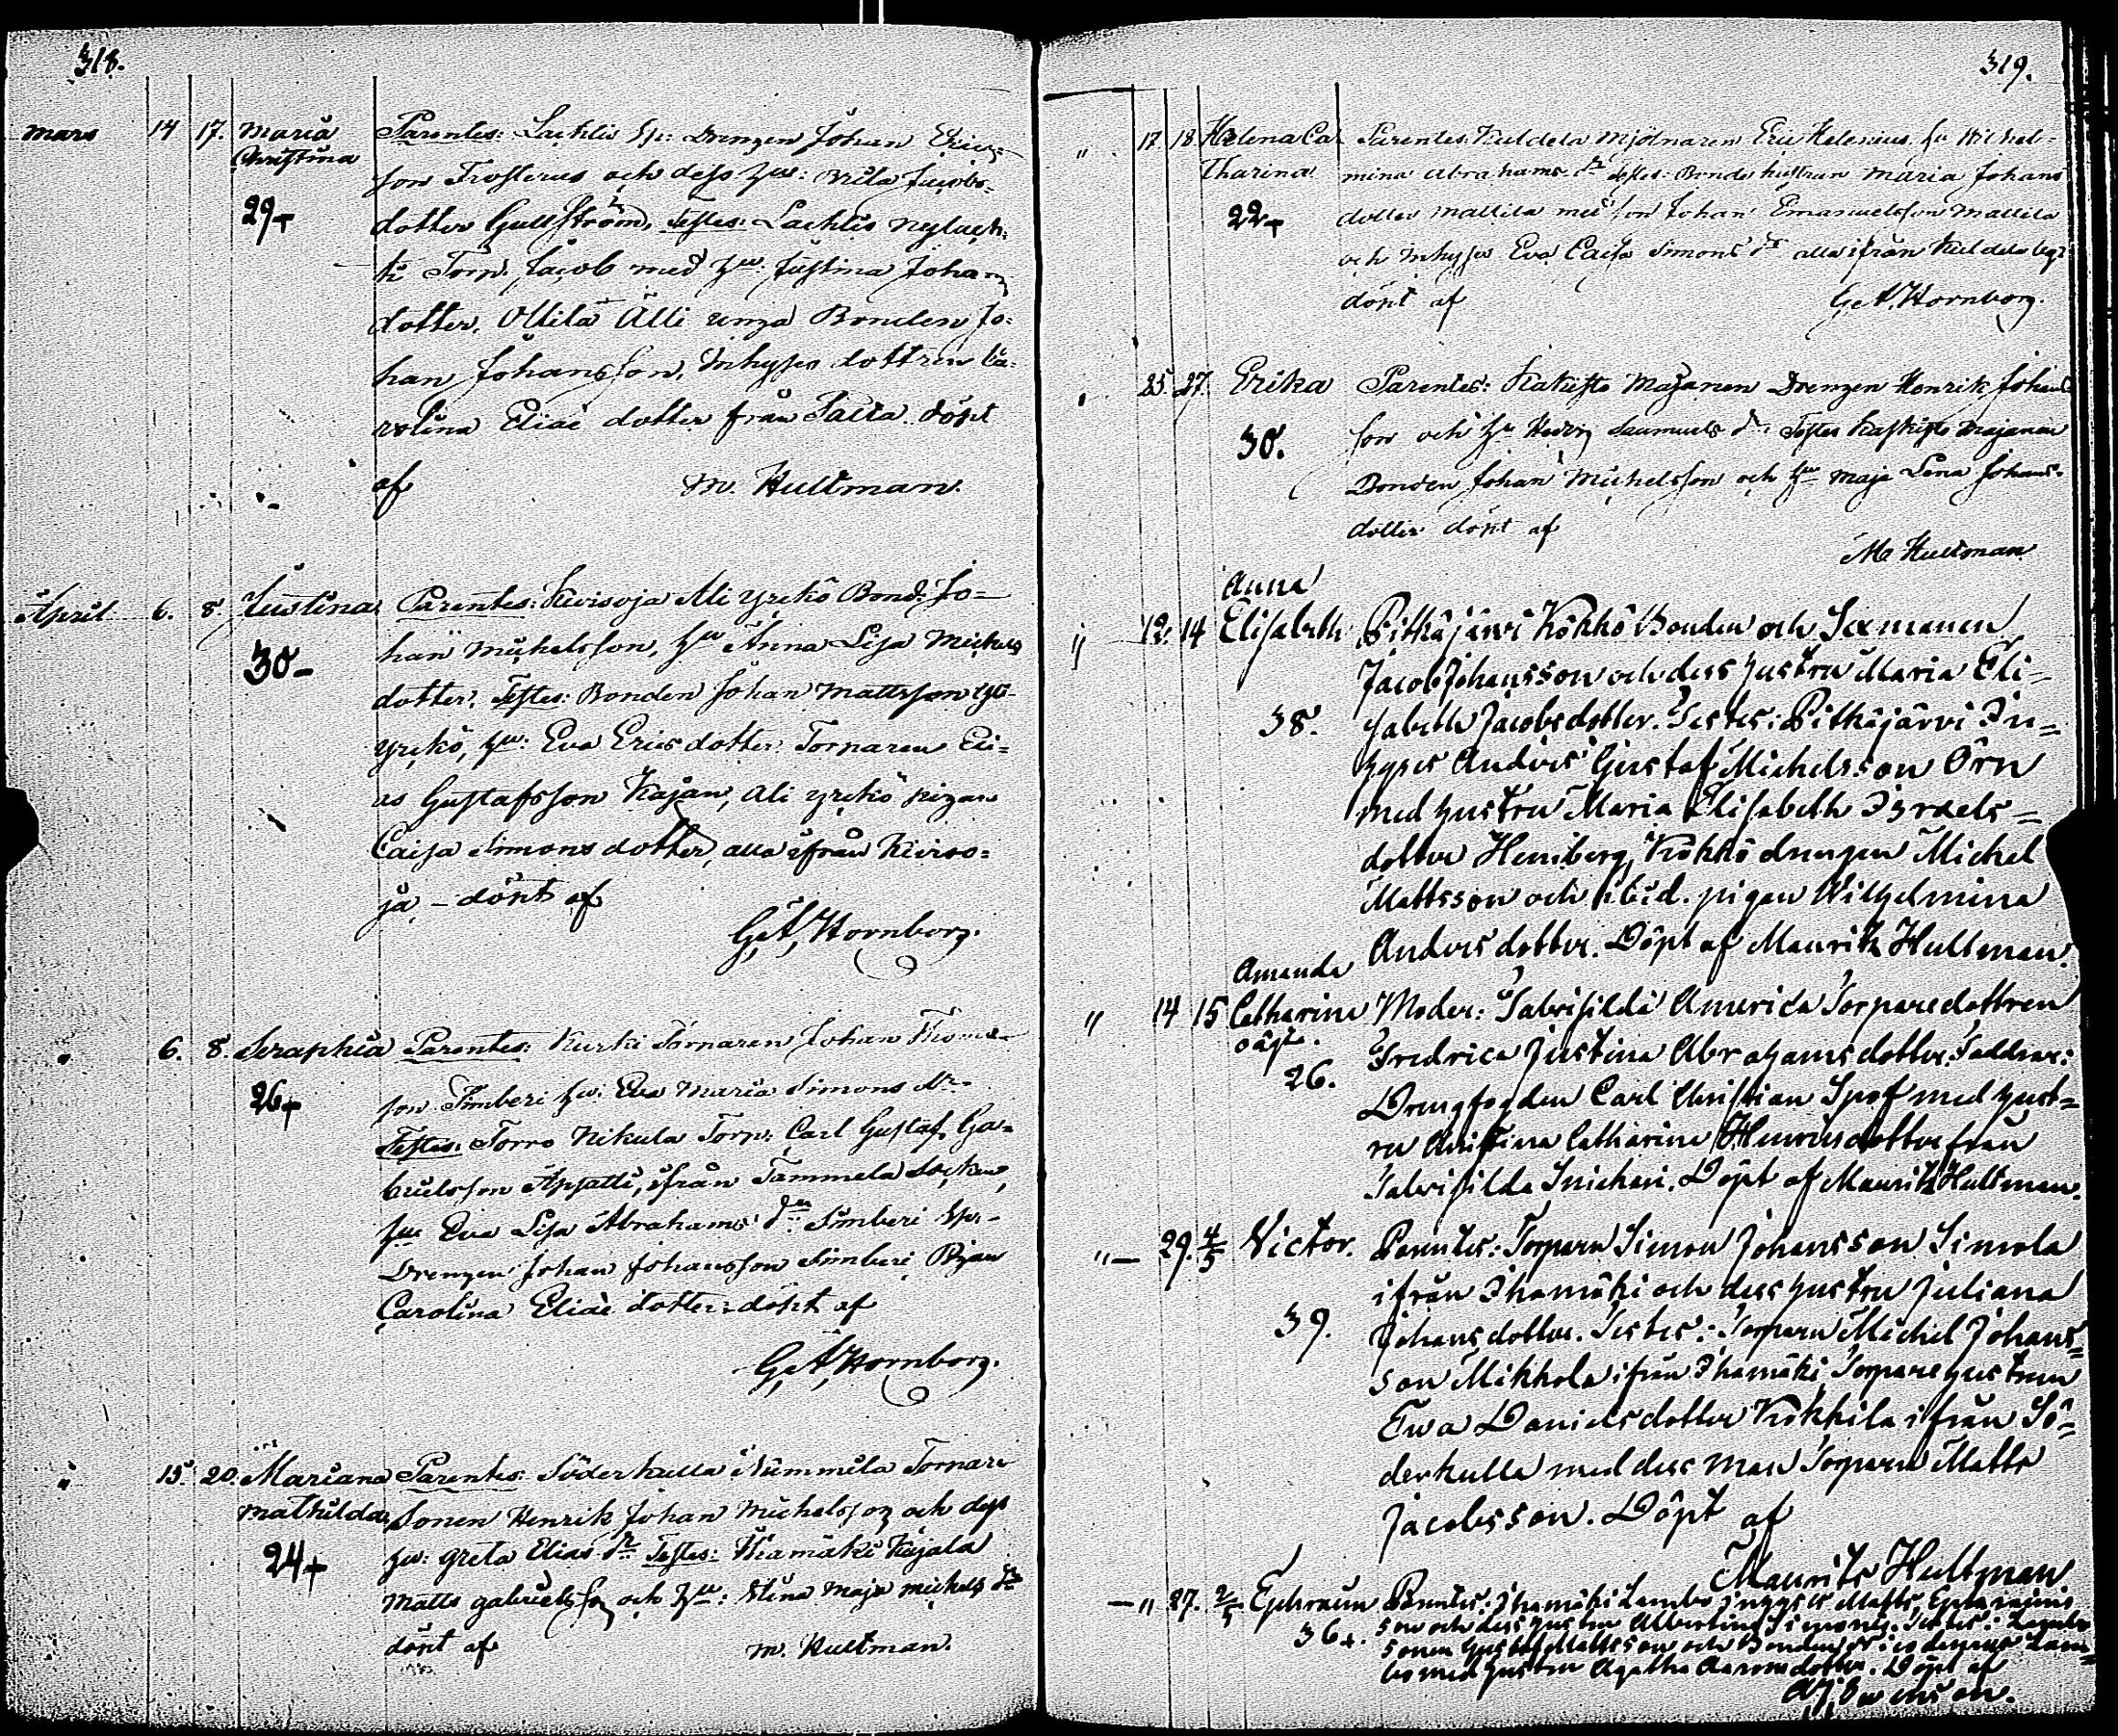 318.
Mars 14 17. Maria Parentes: Lachtis Sp: Drengen Johan Erics
Christina son Frosterus och dess hu: Brita Jacobs-
29+ dotter Gullström, Testes: Lachtis
Torp. Jacob med hu: Justina Johans
dotter, Ollila Alli unga Bonden Jo-
han Johansson, Inhyses dottren Ca-
rolina Eliæ dotter från Salla döpt
af M. Hultman.
April 6. 8. Justina Parentes: Kivisoja Ali Yrkö Bond. Jo-
30- han Michelsson, hu Anna Lisa Michels
dotter, Testes: Bonden Johan Mattsson Yli-
Yrkö, hu: Eva Ericsdotter Torparen Eli-
as Gustafsson Kajan, Ali Yrkö pigan
Caisa Simonsdotter, alla ifrån Kiviso-
ja – döpt af
G. A. Hornborg.
6. 8. Seraphia Parentes: Kurki Torparen Johan Thomas-
26+ son Simberi hu: Eva Maria Simons dr.
Testes: Torro Nikula Torp: Carl Gustaf Ga-
brielsson ifrån Tammela Socken,
hu Eva Lisa Abrahams dr Simberi
Drengen Johan Johansson Simberi Pigan
Carolina Eliæ dotter döpt af
G. A. Hornborg.
15. 20. Mariana Parentes: Söderkulla Nummila Torpare
Mathilda Sonen Henrik Johan Michelsson och dess
24+ hu: Greta Elias dr Testes: Ihamäki Kajala
Matts Gabrielsson och hu: Stina Maja Michels dr
döpt af M. Hultman.
319.
" 17. 18. Helena Ca Parentes: Kuldela Mjölnaren Eric Helenius hu Wilhel-
tharina mina Abrahams dr Testes: Bonde hustrun Maria Johans
22+ dotter Mattila med son Johan Emanuelsson Mattila
och Inhyses Eva Caisa Simons dr alla ifrån Kuldela by
döpt af G. A. Hornborg.
25. 27. Erika Parentes: Majanen Drengen Henrik Johans
30. son och hu Hedvig Samuels dr Testes Majanen
Bonden Johan Michelsson och hu Maja Lena Johans-
dotter döpt af
M. Hultman
Anna
" 12. 14 Elisabeth Pitkäjärvi Kökkö Bonden och Sexmannen
Jacob Johansson och dess hustru Maria Eli-
38. sabeth Jacobsdotter. Testes: Pitkäjärvi In-
hyses Anders Gustaf Michelsson Örn
med hustru Maria Elisabeth Israels-
dotter Heniberg, Kökkö drengen Michel
Mattsson och ibid. pigan Wilhelmina
Andersdotter. Döpt af Maurits Hultman.
Amanda
" 14 15 Catharina Moder: Saloisilda America Torparedottren
oägta. Fredrica Justina Abrahamsdotter. Faddrar:
26. Drengfogden Carl Christian Spof med hust-
ru Christina Catharina Henricsdotter från
Saloisilda Snickari. Döpt af Maurits Hultman.
" – 29. 4/5 Victor. Parentes: Torparen Simon Johansson Simola
ifrån Ihamäki och dess hustru Juliana
39. Johansdotter. Testes: Torparen Michel Johans-
son Mikkola ifrån Ihamäki Torpare hustrun
Ewa Danielsdotter Kökkilä ifrån Sö-
derkulla med dess man Torparen Matts
Jacobsson. Döpt af
Maurits Hultman
– " 27. 2/5 Ephraim Parentes: Ihamäki Lambo Inhyses Matts Ephraims
36+. son och dess hustru Albertina Simonsd. Testes: Lambo
sonen Gustaf Mattsson och Bonden Lam-
bo med hustru Agatha Aaronsdotter. Döpt af